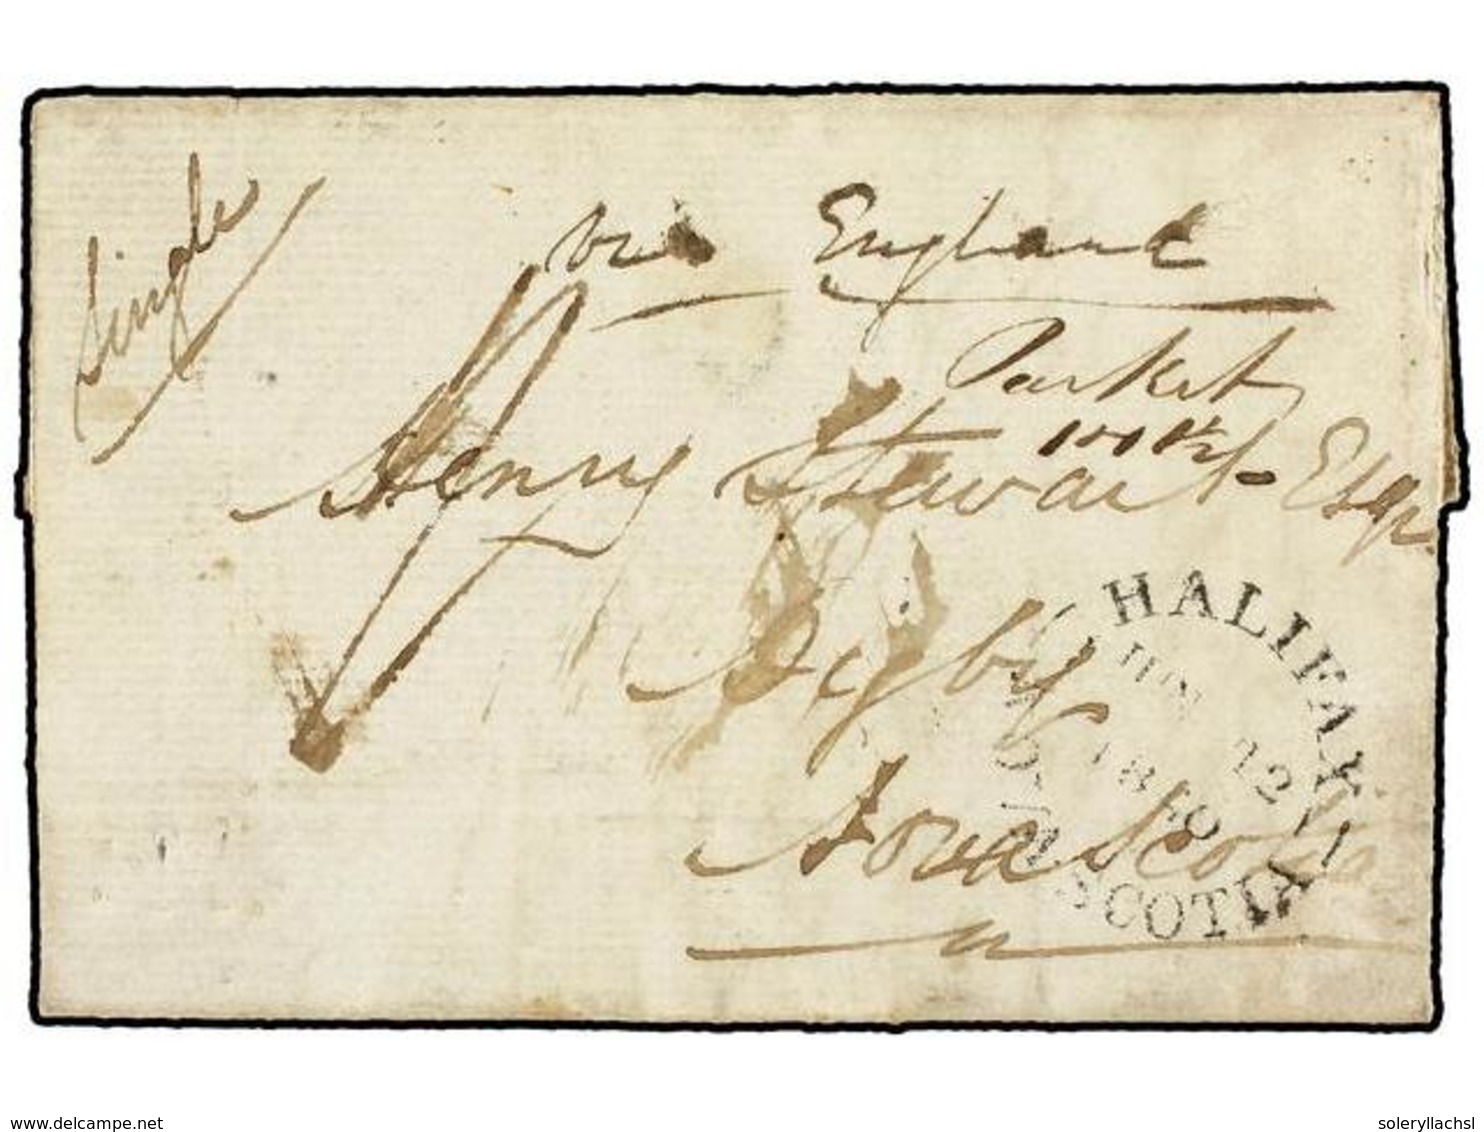 Single
via England
Packet
Henry Stewart Esqr.
Digby
Nova Scotia
HALIFAX
NOVA SCOTIA
JUN 12
1840
delcampe.net
soleryllachsl